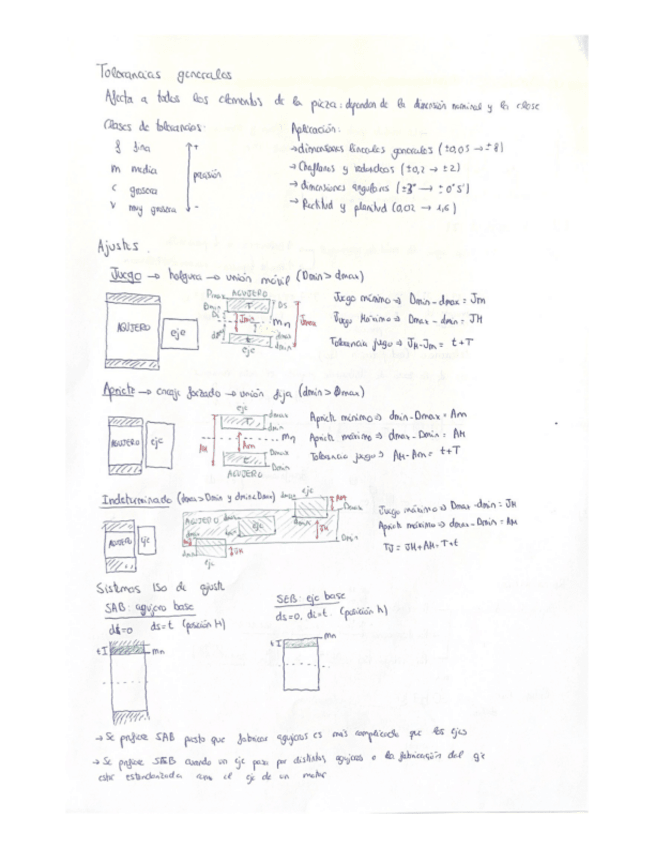 Tolerancias generales
Afecta a todos los elementos de la pieza: dependen de la dimensión nominal y la clase
Clases de tolerancias:
f fina
m media
c grosera
v muy grosera
+
precisión
-
Aplicación:
→ dimensiones lineales generales (±0,05 → ±8)
→ Chaflanes y redondeos (±0,2 → ±2)
→ dimensiones angulares (±3° → ±0°5')
→ Rectitud y planitud (0,02 → 1,6)
Ajustes.
Juego → holgura → unión móvil (Dmin > dmax)
AGUJERO
eje
Dmax AGUJERO
Dmin
Di
Ds
T
Jm
mn
JMax
dmax
dmin
t
eje
Juego mínimo → Dmin - dmax = Jm
Juego Máximo → Dmax - dmin = JM
Tolerancia juego → JM - Jm = t+T
Apriete → encaje forzado → unión fija (dmin > Dmax)
AGUJERO
eje
eje
dmax
dmin
AM
Am
mn
Dmax
Dmin
AGUJERO
Apriete mínimo → dmin - Dmax = Am
Apriete máximo → dmax - Dmin = AM
Tolerancia juego → AM - Am = t+T
Indeterminado (dmax > Dmin y dmin < Dmax)
AGUJERO
eje
AGUJERO
dmax
eje
dmin
eje
AM
Dmax
dmin
JM
Dmin
JM
eje
Juego máximo → Dmax - dmin = JM
Apriete máximo → dmax - Dmin = AM
TJ = JM + AM = T+t
Sistemas ISO de ajuste
SAB: agujero base
di=0 ds=t (posición H)
t
mn
SEB: eje base
ds=0, di=t. (posición h)
t
mn
→ Se prefiere SAB puesto que fabricar agujeros es más complicado que los ejes
→ Se prefiere SEB cuando un eje pasa por distintos agujeros o la fabricación del eje
esté estandarizada como el eje de un motor